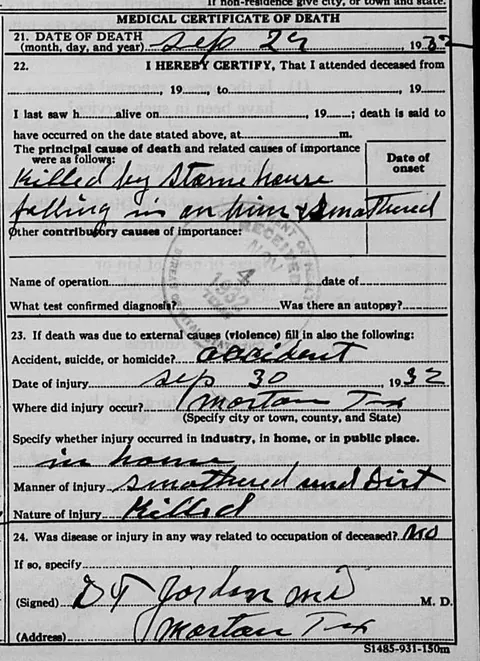 If non-residence give city, or town and state.
MEDICAL CERTIFICATE OF DEATH
21. DATE OF DEATH
(month, day, and year) Sep 29 1932
22. I HEREBY CERTIFY, That I attended deceased from
, 19 to , 19
I last saw h alive on , 19 ; death is said to
have occurred on the date stated above, at m.
The principal cause of death and related causes of importance
were as follows:
Date of
onset
Killed by Storm house
falling in on him & Smothered
Other contributory causes of importance:
RECEIVED
NOV
4
1932
Name of operation date of
What test confirmed diagnosis? Was there an autopsy?
23. If death was due to external causes (violence) fill in also the following:
Accident, suicide, or homicide? accident
Date of injury Sep 30 1932
Where did injury occur? Morton Tex
(Specify city or town, county, and State)
Specify whether injury occurred in industry, in home, or in public place.
in home
Manner of injury Smothered und Dirt
Nature of injury Killed
24. Was disease or injury in any way related to occupation of deceased? NO
If so, specify
(Signed) Jordan MD M. D.
(Address) Morton Tex
S1485-931-150m